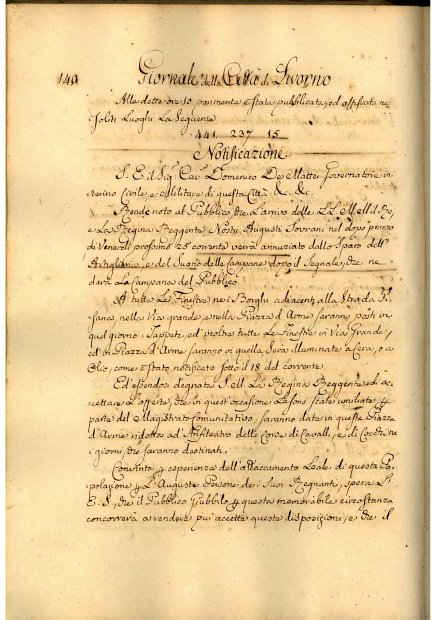 140
Giornale della Città di Livorno
Alle dette ore 10 parimente è stata pubblicata, ed affissata ne
soliti Luoghi La Seguente
441 237 15
Notificazione
S. E. il Sig.e Cav.e Domenico De Mattei Governatore in
terino Civile, e Militare di questa Città &c. &c.
Rende noto al Pubblico che L'arrivo delle LL. M.M. il Re,
e La Regina Reggente Nostri Augusti Sovrani nel dopo pranzo
di Venerdì prossimo 25 corrente verrà annunziato dallo Sparo dell'
Artiglieria, e del Suono delle Campane dopo il Segnale, che ne
darà La Campana del Pubblico.
A tutte Le Finestre nei Borghi adiacenti alla Strada
sana, nella Via grande, e nella Piazza d'Arme saranno posti in
quel giorno i Tappeti, ed inoltre tutte Le Finestre in Via Grande,
ed in Piazza d'Arme saranno in quella Sera illuminate a Cera, o a
Olio, come è stato notificato sotto il 18 del corrente.
Ed essendosi degnata S. M. La Regina Reggente di ac
cettare L'offerte, che in quest'occasione Le sono state umiliate p
parte del Magistrato Comunitativo, saranno date in questa Piazza
d'Arme ridotta ad Anfiteatro delle Corse di Cavalli, e di Cocchi ne
i giorni, che saranno destinati.
Convinta p esperienza dell'attaccamento Leale di questa Po
polazione p L'Auguste Persone dei suoi Regnanti, spera L'
E. S., che il Pubblico Giubbilo p questa memorabile circostanza
concorrerà a rendere più accette queste disposizioni, e che il